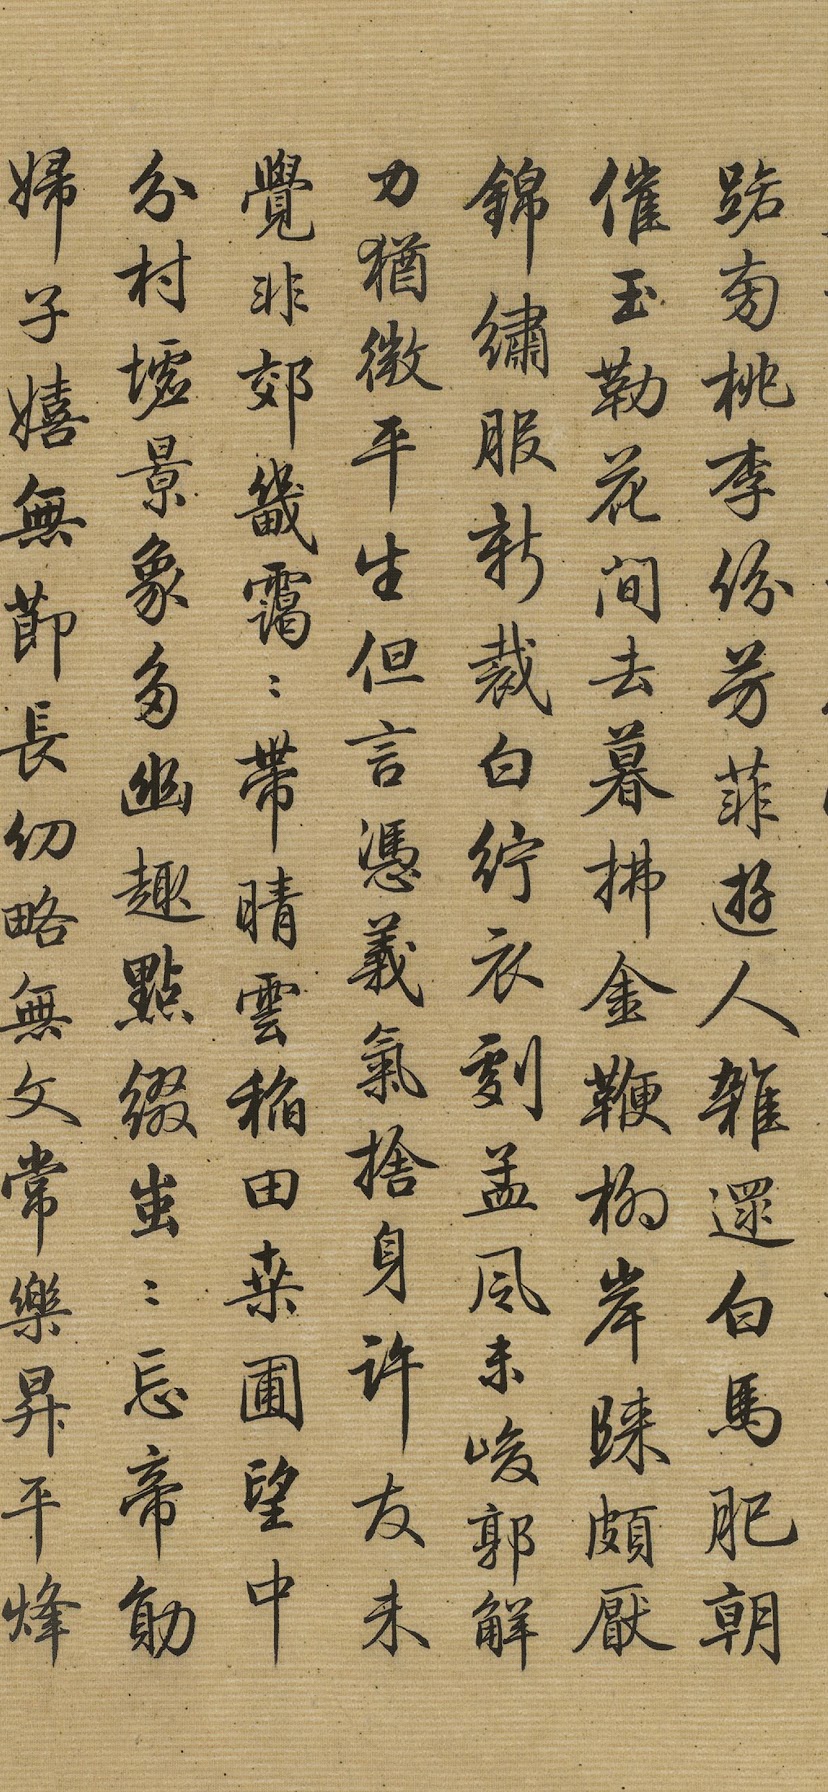 踏南桃李份芳菲遊人雜還白馬肥朝
催玉勒花間去暮拂金鞭柳岸歸頗厭
錦繡服新裁白紵衣劇孟風未峻郭解
力猶微平生但言憑義氣捨身許友未
覺非郊畿靄〻帶晴雲稻田桒圃望中
分村墟景象多幽趣點綴蚩〻忘帝勛
婦子嬉無節長幼略無文常樂昇平烽